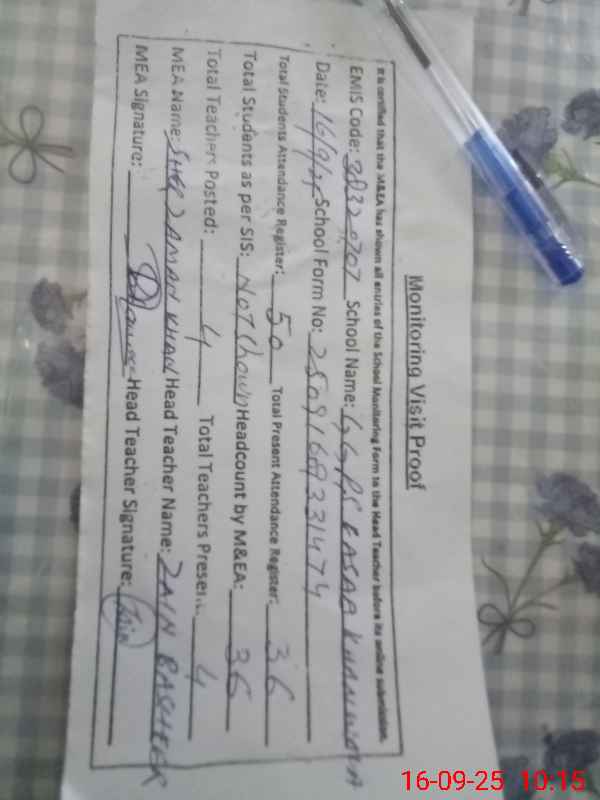 Monitoring Visit Proof
It is certified that the M&EA has shown all entries of the School Monitoring Form to the Head Teacher before its online submission.
EMIS Code: 38320707 School Name: GGPS KASAB KHANWALA
Date: 16/9/25 School Form No: 2509168331474
Total Students Attendance Register: 50 Total Present Attendance Register: 36
Total Students as per SIS: NOT Shown Headcount by M&EA: 36
Total Teachers Posted: 4 Total Teachers Present: 4
MEA Name: SHER ZAMAN KHAN Head Teacher Name: ZAIN BASHEER
MEA Signature: Head Teacher Signature: Zain
16-09-25 10:15